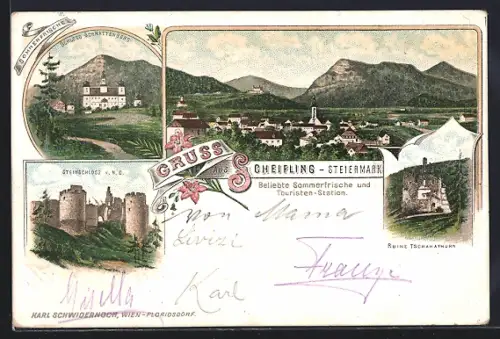 SOMMERFRISCHE
SCHLOSS SCHRATTENBERG
GRUSS aus SCHEIFLING - STEIERMARK
Beliebte Sommerfrische und
Touristen-Station.
STEINSCHLOSS v. N. O.
RUINE TSCHAKATHURN
von Mama
Karl
Gisella
KARL SCHWIDERNOCH, WIEN-FLORIDSDORF.